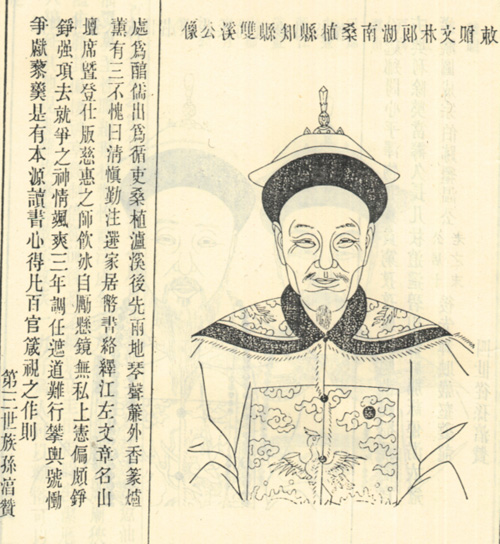 敕贈文林郎湖南桑植縣知縣雙溪公像
處爲醕儒出爲循吏桑植瀘溪後先兩地琴聲簾外香篆爐
薰有三不愧曰清愼勤注選家居幣書絡繹江左文章名山
壇席暨登仕版慈惠之師飲冰自勵懸鏡無私上憲偏頗錚
錚强項去就爭之神情颯爽三年調任遮道難行攀輿號慟
爭獻藜羹是有本源讀書心得凡百官箴視之作則
第三世族孫 贊